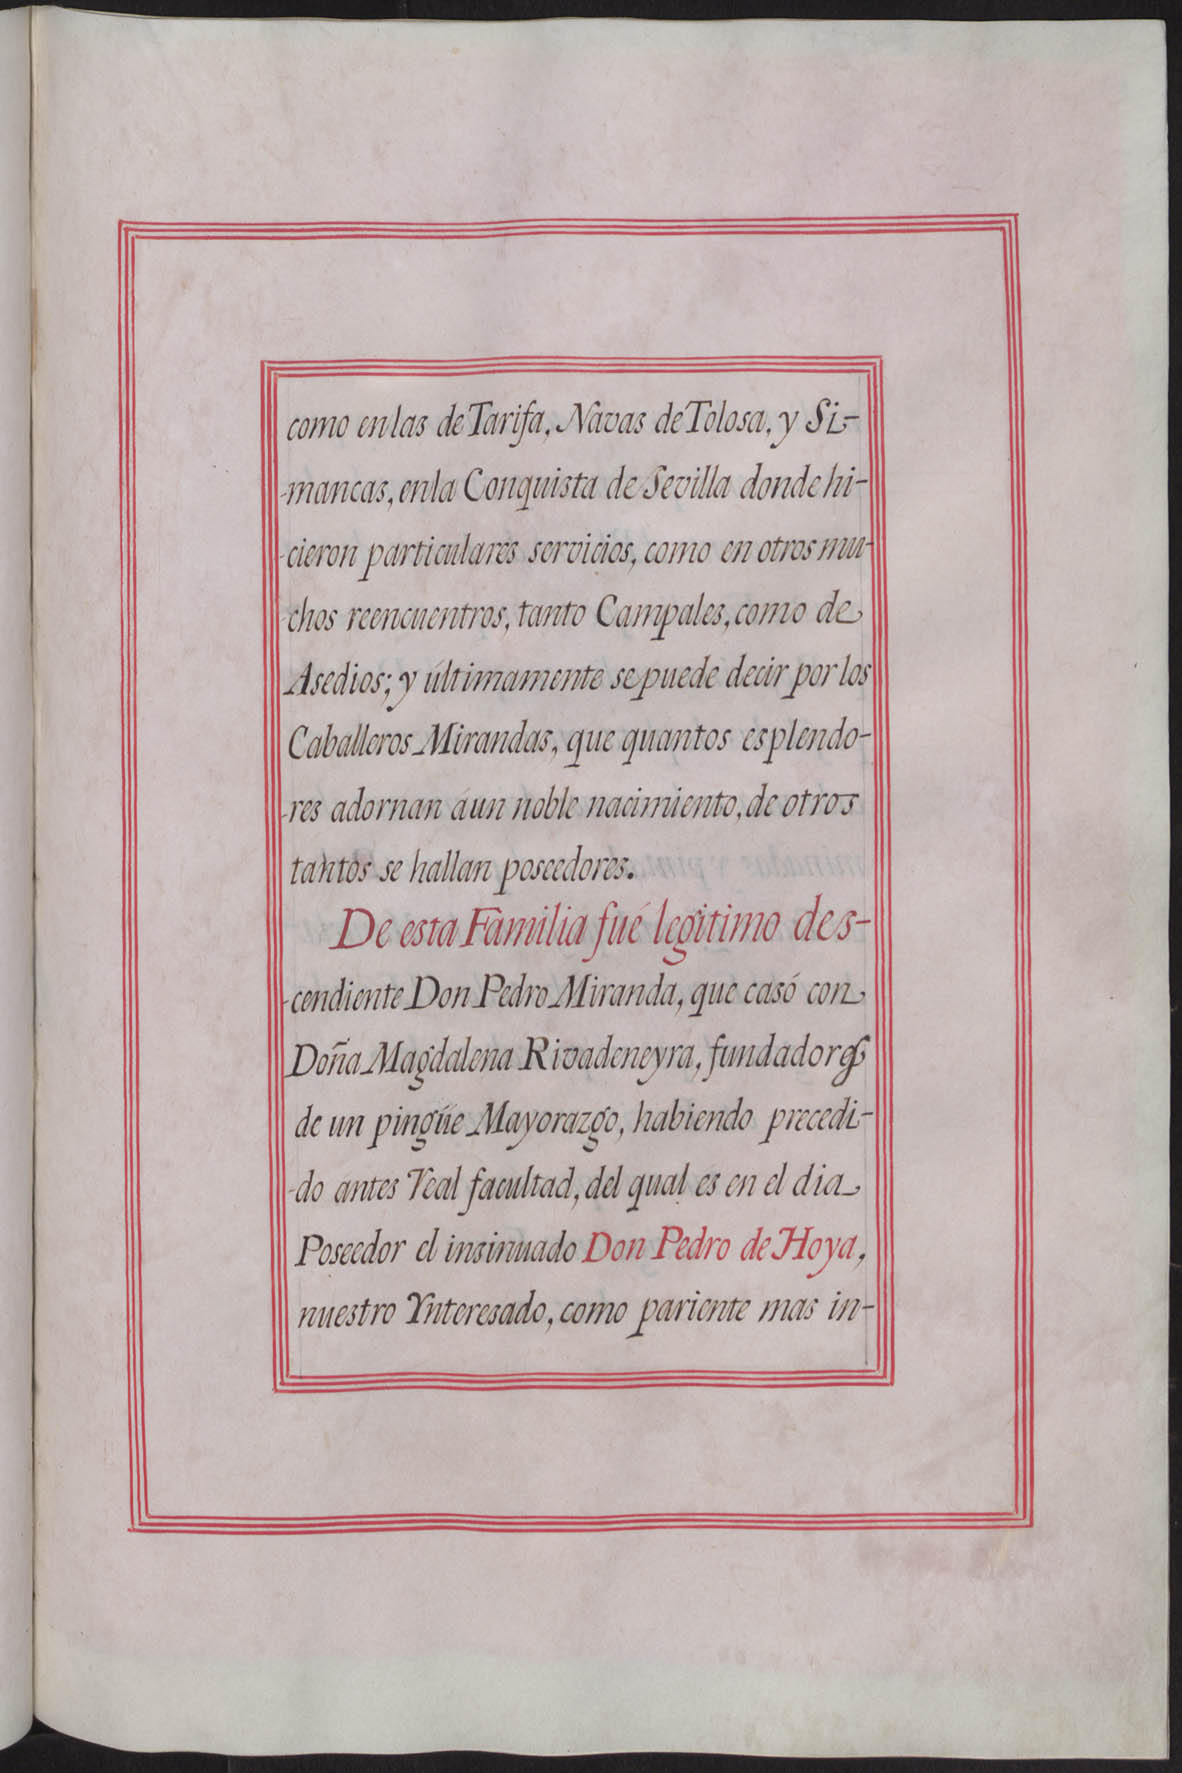 como en las de Tarifa, Navas de Tolosa, y Si-
-mancas, en la Conquista de Sevilla donde hi-
-cieron particulares servicios, como en otros mu-
-chos reencuentros, tanto Campales, como de
Asedios; y últimamente se puede decir por los
Caballeros Mirandas, que quantos esplendo-
-res adornan á un noble nacimiento, de otros
tantos se hallan poseedores.
De esta Familia fué legitimo des-
-cendiente Don Pedro Miranda, que casó con
Doña Magdalena Rivadeneyra, fundadores
de un pingüe Mayorazgo, habiendo precedi-
-do antes Real facultad, del qual es en el dia
Poseedor el insinuado Don Pedro de Hoya,
nuestro Ynteresado, como pariente mas in-